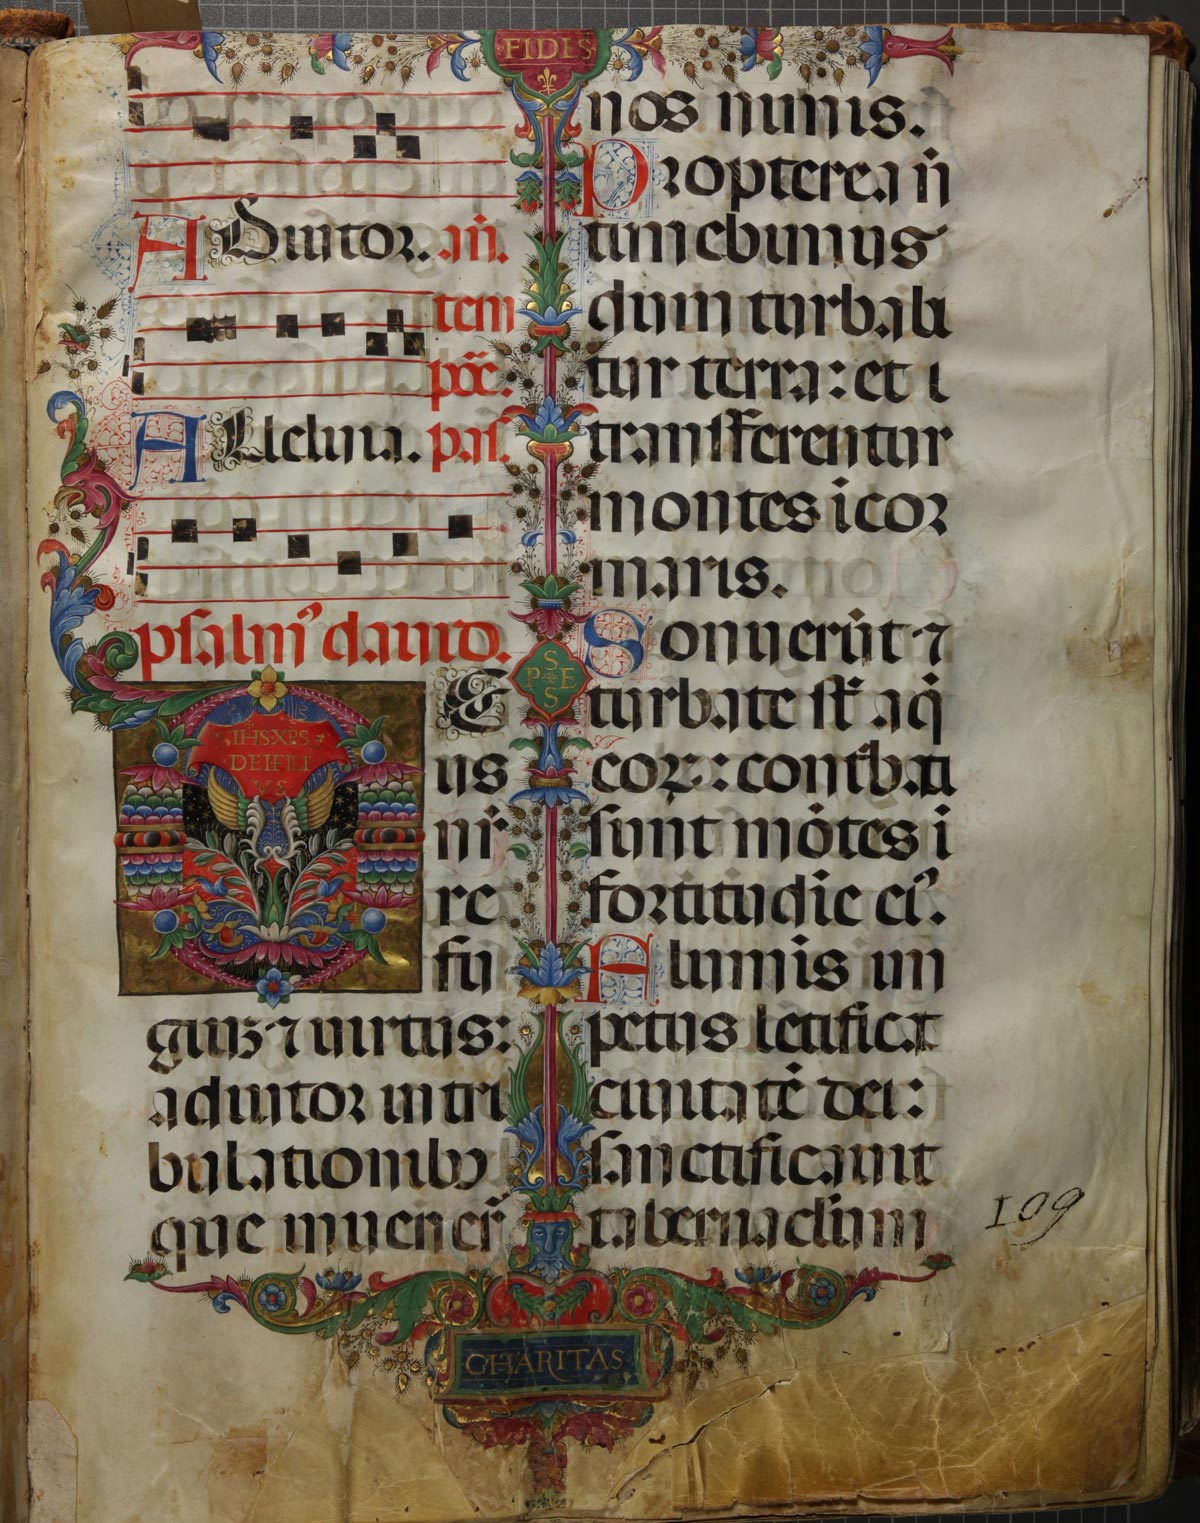 FIDES
Adiutor. an̄.
tem
pōe.
Alleluia. pas.
psalm9 dauid.
IHSXPS
DEI FILI
VS
E
us
nr̄
re
fu
giuʒ ⁊ uirtus:
adiutor in tri
bulationibꝫ
que inuenerūt
nos nimis.
Propterea nō
timebimus
dum turbabi
tur terra: et ī
transferentur
montes i cor
maris.
Sonuerūt ⁊
turbate st̄ aq̄
eorꝝ: conturbati
sunt mōtes i
fortitudīe ei9.
Fluminis im
petus letificat
ciuitatē dei:
sanctificauit
tabernaclūm
SPES
CHARITAS
109